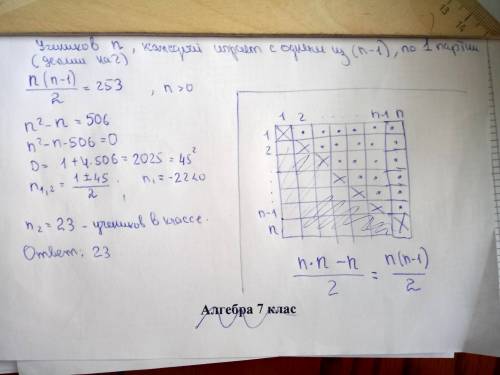 Учеников n, каждый играет с одним из (n-1), по 1 партии
(делим на 2)
n(n-1)/2 = 253 , n>0
n²-n = 506
n²-n-506=0
D = 1+4.506=2025=45²
n₁,₂ = 1±45/2 , n₁=-22<0
n₂=23 - учеников в классе.
Ответ: 23
1 2 . . . . . n-1 n
1
2
n-1
n
n·n-n/2 = n(n-1)/2
Алгебра 7 клас